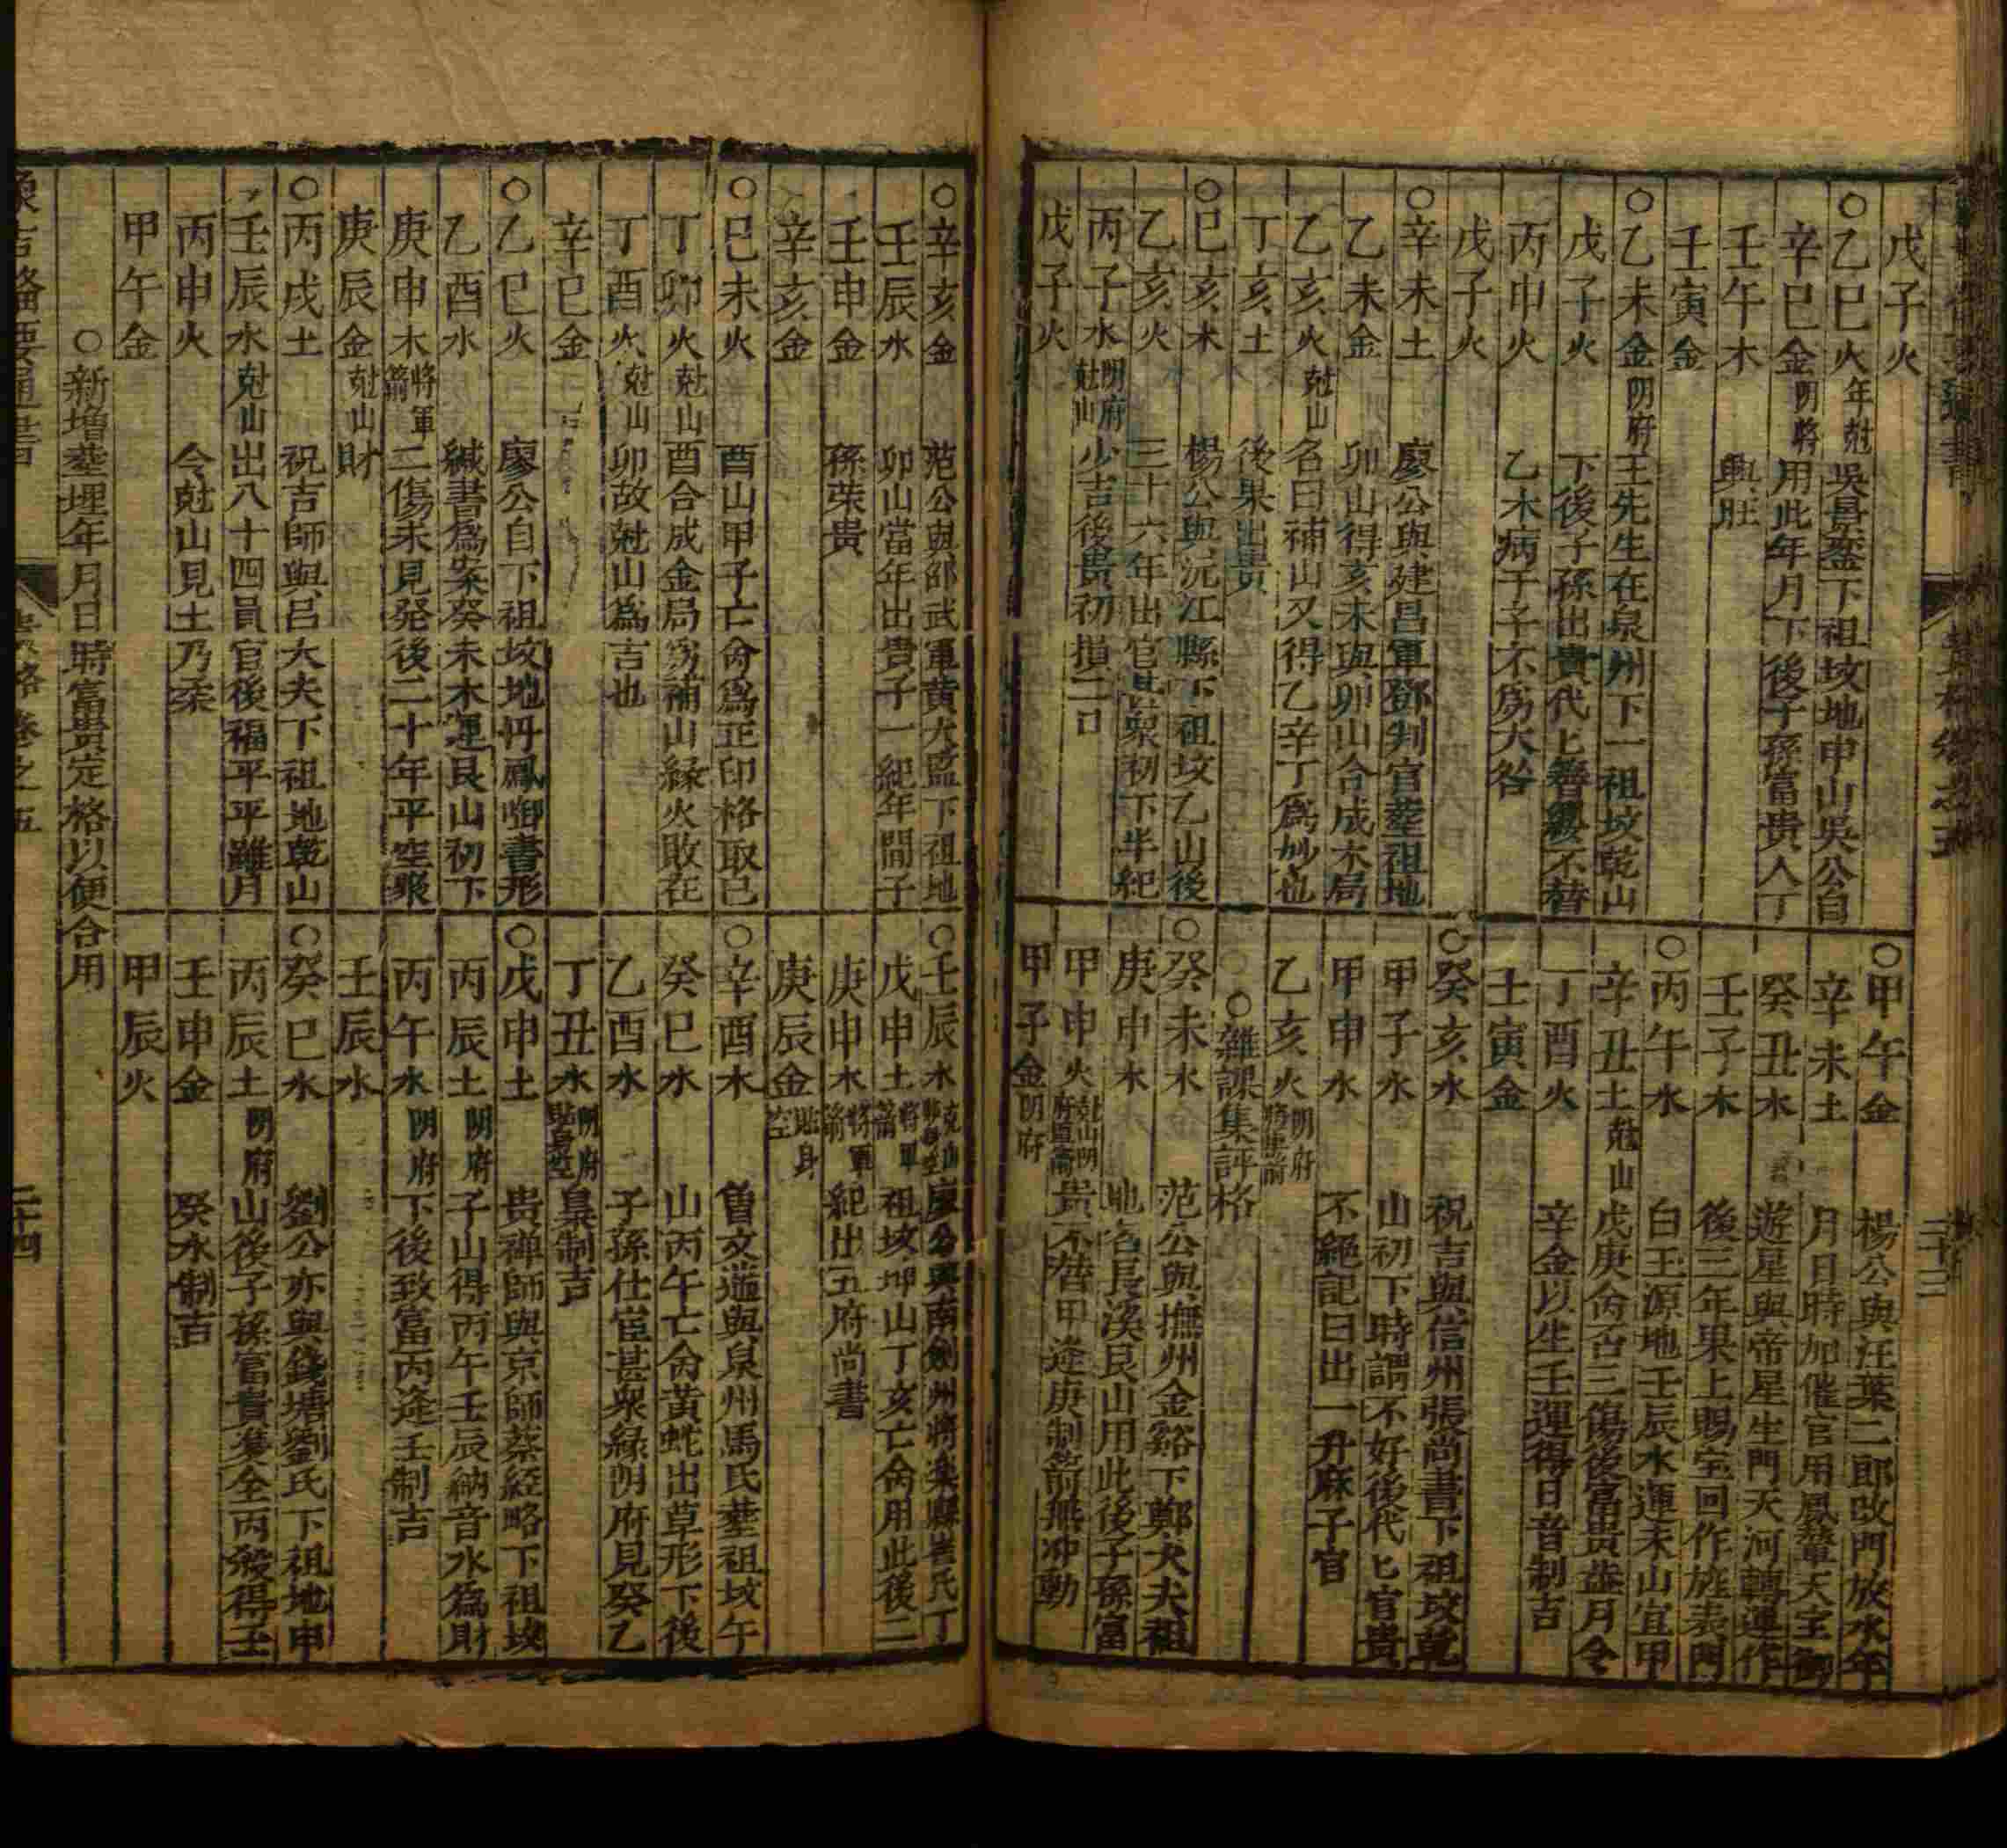 戊子火
○乙巳火年尅吳景鸞下祖坟地申山吳公自
辛巳金用此年月下後子孫富貴人丁
壬午木興旺
壬寅金
○乙未金阴府王先生在泉州下一祖坟乾山
戊子火下後子孫出貴代上簪纓不替
丙申火乙木病于子不爲大咎
戊子火
○辛未土廖公與建昌軍鄧判官塟祖地
乙未金卯山得亥未與卯山合成木局
乙亥火尅山名曰補山又得乙辛丁爲妙也
丁亥土後果出貴
○巳亥木楊公與沅江縣下祖坟乙山後
乙亥火三十六年出官貴衆初下半紀
丙子水阴府尅山少吉後貴初損二口
戊子火
○甲午金楊公與汪葉二郎改門放水年
辛未土月日時加催官用鳳輦天宝
癸丑水遊星與帝星生門天河轉運作
壬子木後三年果上賜宝回作旌表門
○丙午水白玉源地壬辰水運未山宜甲
辛丑土尅山戊庚命召三傷後富貴盖月令
丁酉火辛金以生壬運得日音制吉
壬寅金
○癸亥水祝吉與信州張尚書下祖坟乾
甲子水山初下時謂不好後代匕官貴
甲申水不絕記曰出一升麻子官
乙亥火阴府將軍箭
○雜課集評格
○癸未木范公與撫州金谿下鄭大夫祖
庚申木地名長溪艮山用此後子孫富
甲申火尅山阴府貴不替甲逢庚制箭無冲動
甲子金阴府
○辛亥金范公與邵武軍黄大監下祖地
壬辰水卯山當年出貴子一紀年間子
壬申金孫荣貴
辛亥金
○巳未火酉山甲子亡命爲正印格取巳
丁卯火尅山酉合成金局爲補山緑火敗在
丁酉火尅山卯故尅山爲吉也
辛巳金
○乙巳火廖公自下祖坟地丹鳳啣書形
乙酉水緘書爲案癸未木運艮山初下
庚申木將軍箭二傷未見発後二十年平空聚
庚辰金尅山財
○丙戌土祝吉師與呂大夫下祖地乾山
壬辰水尅山出八十四員官後福平平雖月
丙申火令尅山見土乃柔
甲午金
○壬辰水廖公與南劍州將樂縣崔氏丁
戊申土將軍箭祖坟卯山丁亥亡命用此後二
庚申木將軍箭紀出五府尚書
庚辰金貼身空
○辛酉木曾文遄與泉州馬氏塟祖坟午
癸巳水山丙午亡命黄蛇出草形下後
乙酉水子孫仕宦甚衆緑阴府見癸乙
丁丑水阴府貼身空梟制吉
○戊申土貴禅師與京師蔡経略下祖坟
丙辰土阴府子山得丙午壬辰納音水爲財
丙午水阴府下後致富丙逢壬制吉
壬辰水
○癸巳水劉公亦與錢塘劉氏下祖地申
丙辰土阴府山後子孫富貴双全丙煞得壬
壬申金癸水制吉
甲辰火
○新增塟埋年月日時富貴定格以便合用
象吉備要通書
卷之五
二十四